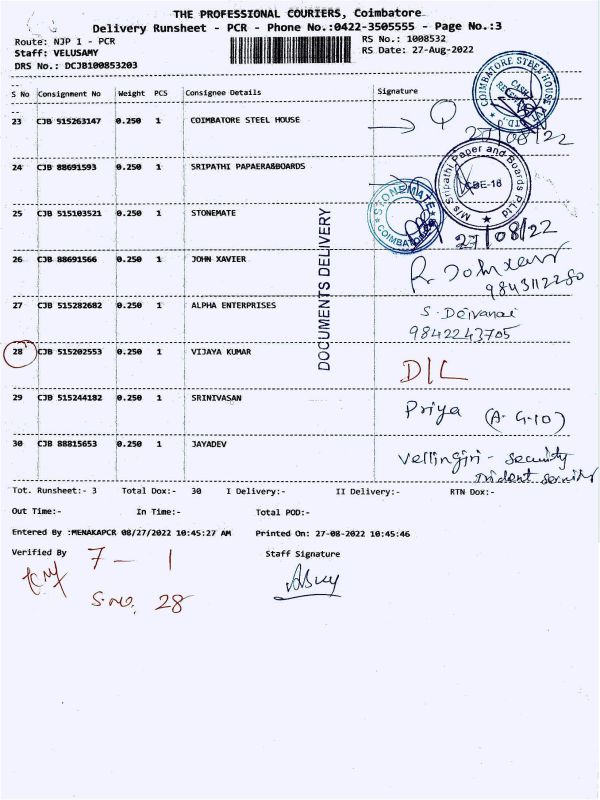 THE PROFESSIONAL COURIERS, Coimbatore
Delivery Runsheet - PCR - Phone No.:0422-3505555 - Page No.:3
Route: NJP 1 - PCR
RS No.: 1008532
Staff: VELUSAMY
RS Date: 27-Aug-2022
DRS No.: DCJB100853203
S No Consignment No Weight PCS Consignee Details Signature
COIMBATORE STEEL HOUSE
23 CJB 515263147 0.250 1 COIMBATORE STEEL HOUSE
27/08/22
24 CJB 88691593 0.250 1 SRIPATHI PAPAERA&BOARDS
M/s Sripathi Paper and Boards P Ltd
CBE-18
25 CJB 515103521 0.250 1 STONEMATE
STONEMATE
COIMBATORE
27/08/22
DOCUMENTS DELIVERY
26 CJB 88691566 0.250 1 JOHN XAVIER
R. John xavier
9843112280
27 CJB 515282682 0.250 1 ALPHA ENTERPRISES
S. Deivanai
9842243705
28 CJB 515202553 0.250 1 VIJAYA KUMAR
D/L
29 CJB 515244182 0.250 1 SRINIVASAN
Priya (A-G-10)
30 CJB 88815653 0.250 1 JAYADEV
Vellingiri - security
Trident service
Tot. Runsheet:- 3 Total Dox:- 30 I Delivery:- II Delivery:- RTN Dox:-
Out Time:- In Time:- Total POD:-
Entered By :MENAKAPCR 08/27/2022 10:45:27 AM Printed On: 27-08-2022 10:45:46
Verified By Staff Signature
7 - 1
S.no. 28